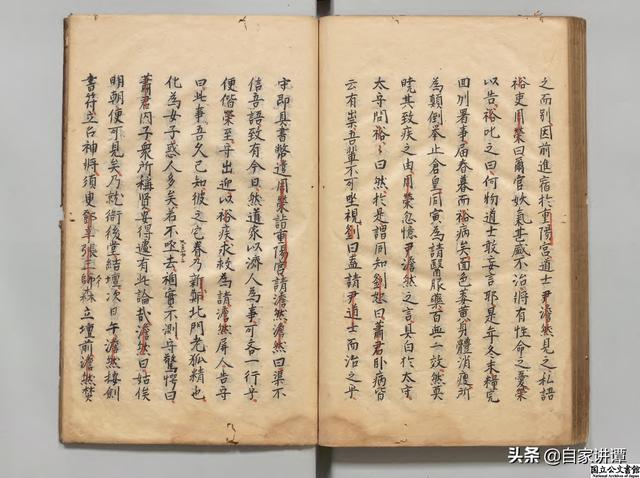 之而別因前進宿於重陽宮道士尹澹然見之私語
裕吏周榮曰爾官妖氣甚盛不治將有性命之憂榮
以告裕叱之曰何物道士敢妄言耶是年冬末糧完
回州署事届春暮而裕病矣面色萎黄身體消瘦所
為顛倒舉止倉皇同寅為請醫服藥百無一效然莫
曉其致疾之由周榮忽憶尹澹然之言具白於太守
太守問裕々曰然於是謂同知劉恕曰蕭君卧病皆
云有祟吾輩不可坐視劉曰盍請尹道士而治之乎
守即具書幣遣周榮訪重陽宮請澹然澹然曰渠不
信吾語致有今日然道家以濟人為事可吝一行乎
便偕榮至守出迎以裕疾求救為請澹然屏人告守
曰此事吾久已知彼之宅眷乃新鄭北門老狐精也
化為女子惑人多矣若不亟去禍實不測守驚愕曰
蕭君内子衆所稱賢安得遽有此論哉澹然曰姑俟
明朝便可見矣乃就衙後堂結壇次日午澹然按劍
書符立召神將須臾鄧辛張三帥森立壇前澹然焚
头条 @自家讲谭
国立公文書館
National Archives of Japan